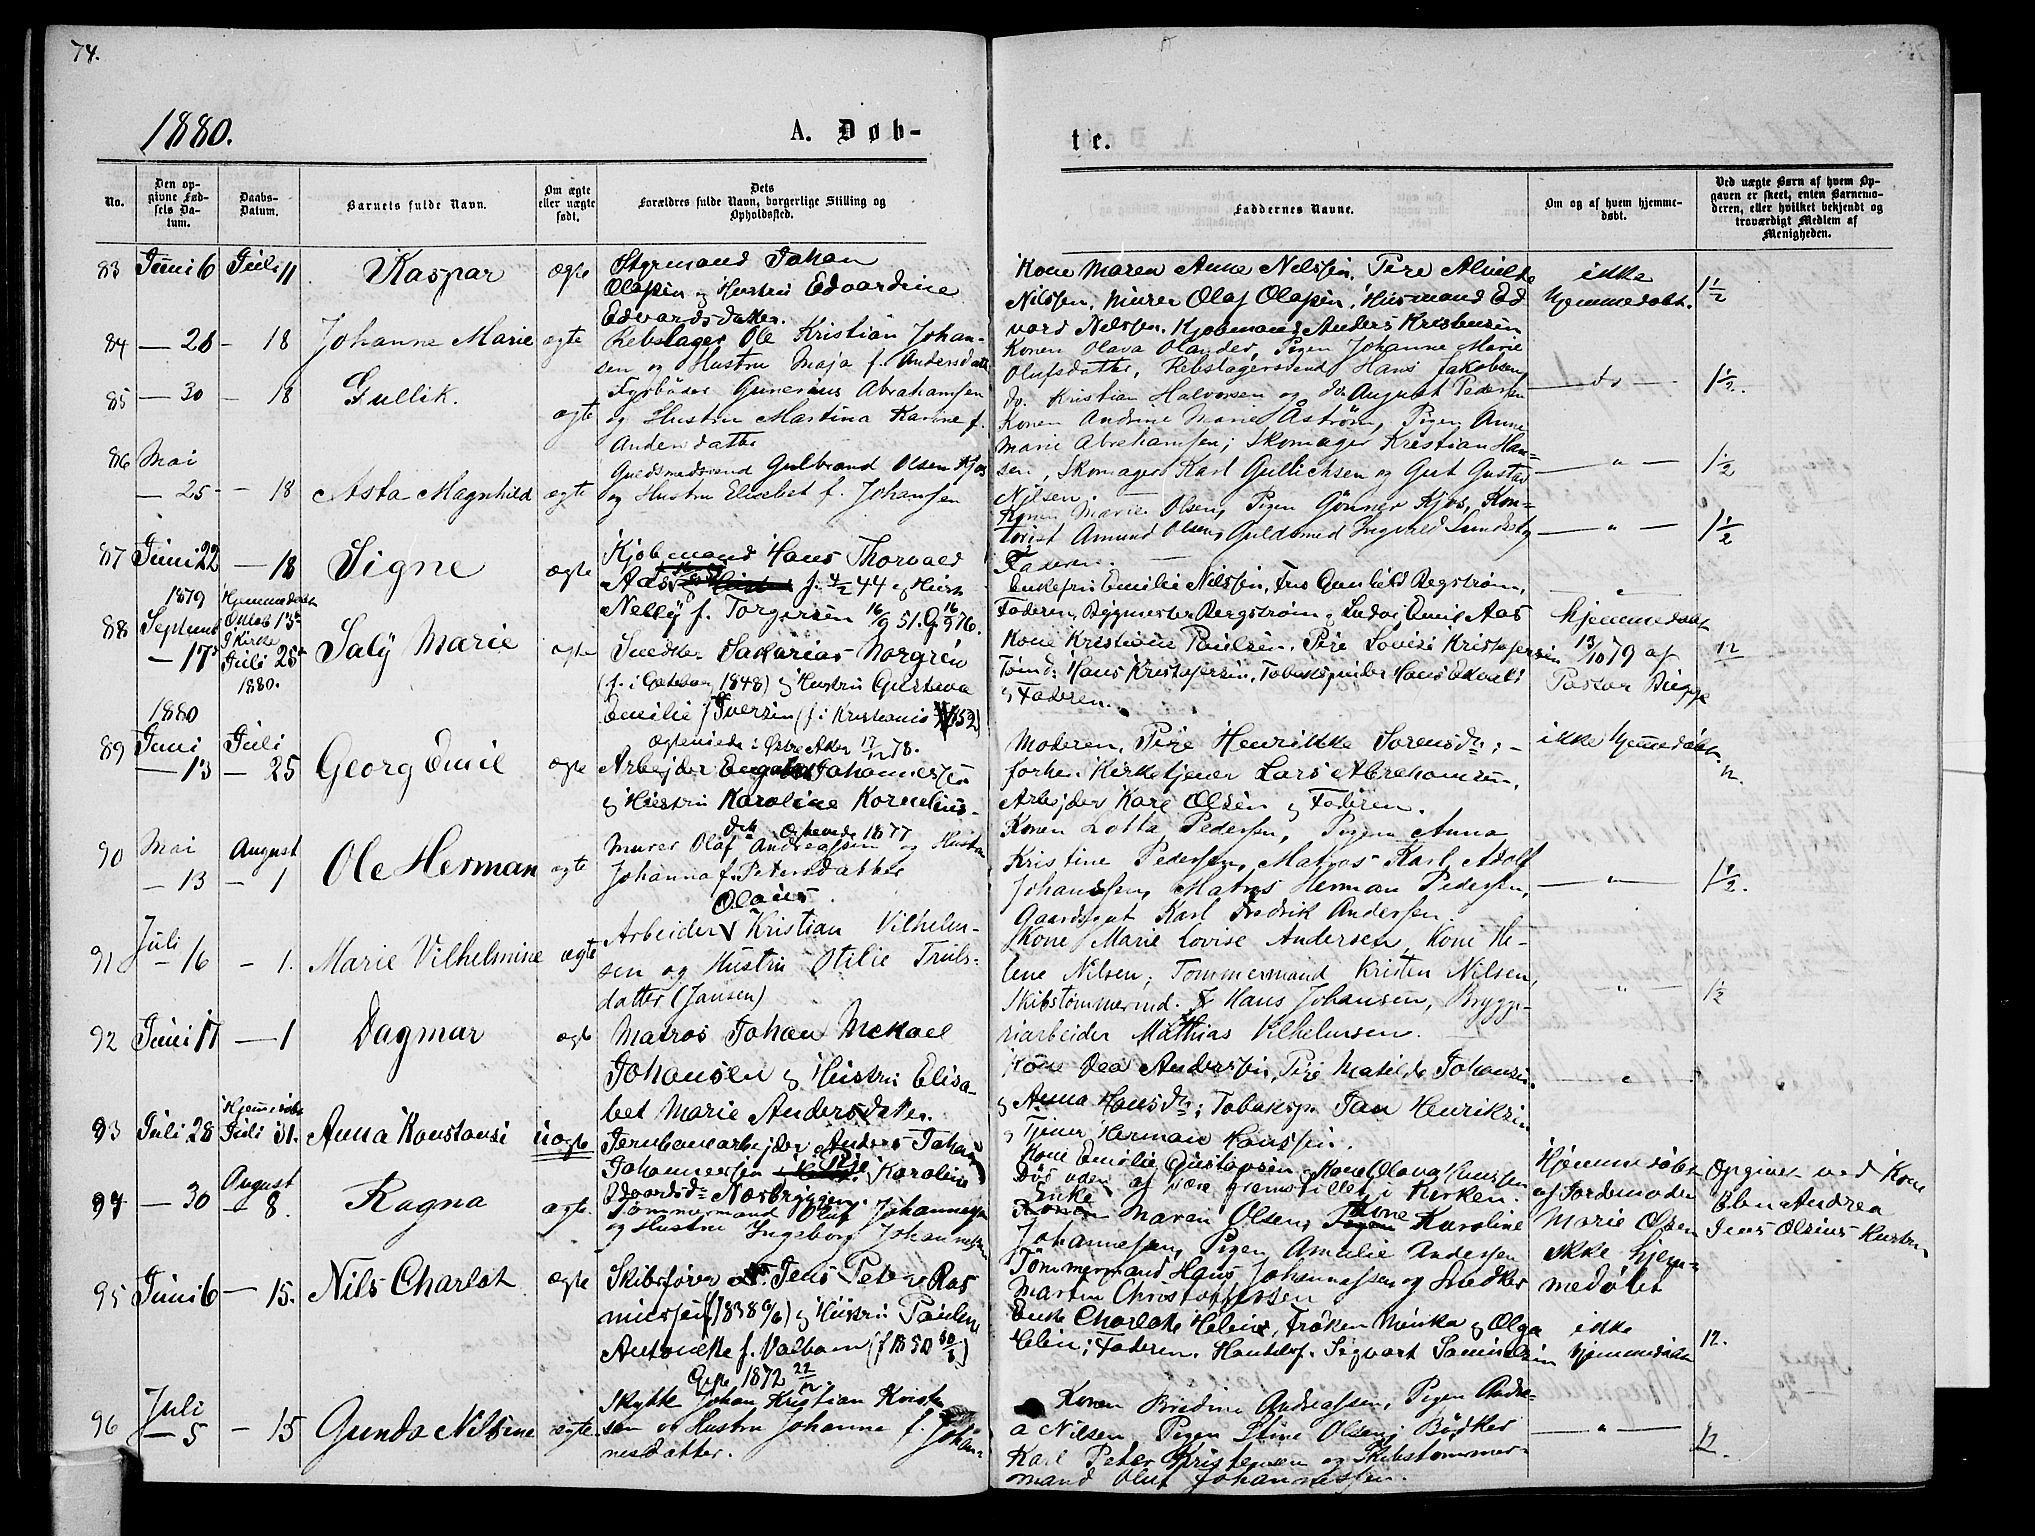 74.
1880.
A. Døb-
te.
No.
Den op-
givne Fød-
sels Da-
tum.
Daabs-
Datum.
Barnets fulde Navn.
Om ægte
eller uægte
født.
Dets
Forældres fulde Navn, borgerlige Stilling og
Opholdssted.
Faddernes Navne.
Om og af hvem hjemme-
døbt.
Ved uægte Børn af hvem Op-
gaven er skeet, enten Barnemo-
deren, eller hvilket bekjendt og
troværdigt Medlem af
Menigheden.
83 Juni 6 Juli 11 Kaspar ægte
Styrmand Johan
Olafsen og Hustru Edvardine
Edvardsdatter.
Kone Maren Anne Nilssen. Pige Alvilde
Nilssen, Murer Olaf Olafsen, Husmand Ed
vard Nelssen. Kjøbmand Anders Kristensen
ikke
hjemmedøbt.
1/2
84 — 28 — 18 Johanne Marie ægte
Rebslager Ole Kristian Johan-
sen og Hustru Maja f. Andersdatt
Konen Olava Olander, Pigen Johanne Marie
Olufsdatter, Rebslagersvend Hans Jakobsen,
do. Kristian Halvorsen og do August Pedersen
— do —
1/2.
85 — 30 — 18 Gullik. ægte
Fyrbøder Gunerius Abrahamsen
og Hustru Martina Karine f.
Andersdatter
Konen Andrine Marie Åstrøm, Pigen Anne
Marie Abrahamsen; Skomager Kristian Han-
sen, Skomager Karl Gullichsen og Gut Gustav
Nilsen. —
— " —
1/2
86 Mai
— 25 — 18 Asta Magnhild ægte
Guldsmedsvend Gulbrand Olsen Kjos
og Hustru Elisebet f. Johansen
Konen Marie Olsen, Pigen Gønner Kjos, Kon-
torist Amund Olsen, Guldsmed Ingvald Sundsby
Faderen. —
— " —
1/2
87 Juni 22 — 18 Signe ægte
Kjøbmand Hans Thorvald
Aas f. 4/2 44 og Hustr
Nelly f. Torgersen 16/9 51. G 16/9 76.
Enkefru Emilie Nilssen, Fru Bergstrøm,
Faderen, Bygmester Bergstrøm og Ludv. Emil Aas
88 1879
Septemb
— 17de
Hjemmedøbt
Oktob 13de
i Kirke
Juli 25de
1880.
Saly Marie ægte
Snedker Sakarias Norgren
(f. i 1848) og Hustru Gustava
Emilie f Iversen (f. i Kristiania 1852)
Ægteviede i Østre Aker 17/12 78.
Kone Kristiane Poulsen. Pige Lovise Kristofersen
Tømd: Hans Kristofersen, Tobakspinder Hans Edvald
og Faderen.
Hjemmedøbt
13/10 79 af
Pastor Bugge
12
89 1880
Juni
— 13
Juli
— 25
Georg Emil ægte
Arbejder Johannessen
og Hustru Karoline Kornelius-
dtr Ægteviede 1877
Moderen, Pige Henrikke Sorensdtr; —
forhen Kirketjener Lars Abrahamsen,
Arbejder Karl Olsen og Faderen.
ikke hjemmedøbt.
12.
90 Mai
— 13
August
— 1
Ole Herman ægte
Murer Olaf Andreassen og Hustru
Johanna f. Petersdatter
Konen Lotta Pedersen, Pigen Anna
Kristine Pedersen, Matros Karl Adolf
Johanssen, Matros Herman Pedersen,
Gaardsgut Karl Fredrik Andersen.
— " —
1/2.
91 Juli
— 16 — 1. Marie Vilhelmine ægte
Olaus
Arbeider Kristian Vilhelm-
sen og Hustru Otilie Truls-
datter (Jansen)
Kone Marie Lovise Andersen, Kone He-
lene Nilsen; Tømmermand Kristen Nilsen,
Skibstømmermd. Hans Johansen, Brygge-
riarbeider Mathias Vilhelmsen.
— " —
1/2
92 Juni 17 — 1 Dagmar ægte
Matros Johan Mekael
Johansen og Hustru Elisa-
bet Marie Andersdatter.
Kone Dea Anderssen, Pige Matilde Johansen
og Anna Hansdtr; Tobaksp. Jan Henriksen
og Tjener Herman Hanssen.
— " —
93 Juli 28
Hjemmedøbt
Juli 31. Anna Konstanse uægte
Jernbanearbejder Anders Johan
Johannessen Pige Karoline
Edvardsdr Næsbryggen.
Kone Emilie Gustavsen, Kone Olava Hanssen
Død uden at være fremstillet i Kirken.
Hjemmedøbt
af Jordemoder
Marie Olsen
Opgivet ved Kone
Elen Andrea
Jens Olsens Hustru
94 — 30
August
— 8. Ragna ægte.
Tømmermand Oluf Johannessen
og Hustru Ingeborg Johannessen
Enke Maren Olsen, Kone Karoline
Johannessen, Pigen Amalie Andersen
Tømmermand Hans Johannessen og Snedker
Martin Christoffersen
ikke hjem-
medøbt
95 Juni 6 — 15. Nils Charlot ægte
Skibsfører Jens Peter Ras
mussen (1838 6/6) og Hustru Pauline
Antonette f. Valbom (f. 1850 30/6)
Gifte 1872 22/12.
Enke Charlotte Helin, Frøken Minka og Olga
Helin; Faderen. Handelsf. Sigvart Samuelsen
ikke
hjemmedøbt
12.
96 Juli
— 5 — 15 Gunda Nilsine ægte.
Skytte Johan Kristian Krist
sen og Hustru Johanne f. Johan-
nesdatter.
Konen Bredine Andreassen, Pigen Andre-
a Nilsen, Pigen Stine Olsen; Bødker
Karl Peter Kristensen og Skibstømmer-
mand Oluf Johannessen.
— " —
12.